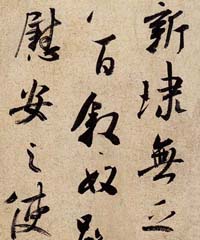 新埭無
百叙奴
慰安之使